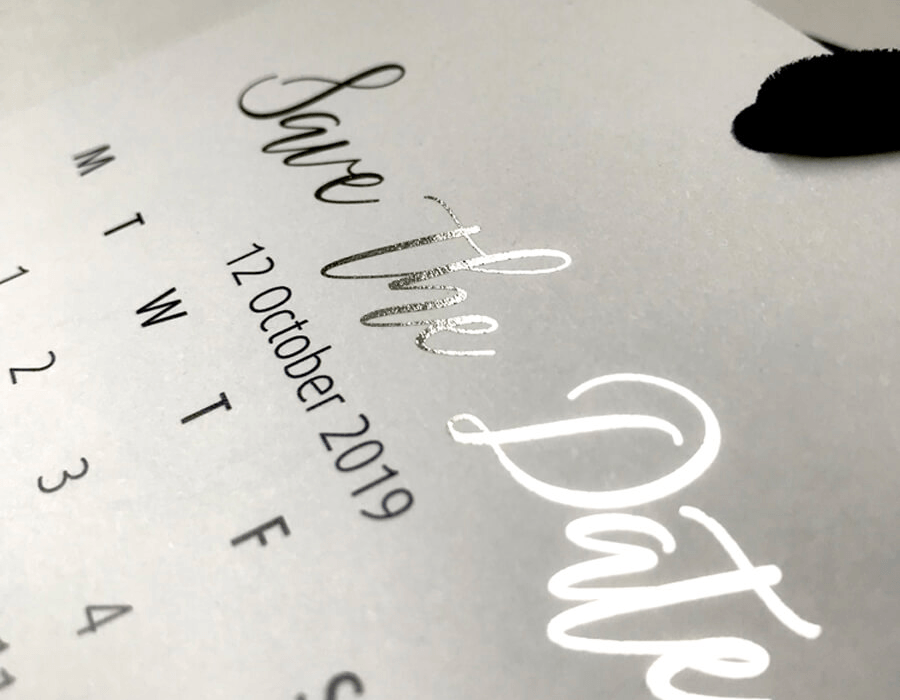 Save the Date
12 October 2019
M T W T F S
1 2 3 4
11